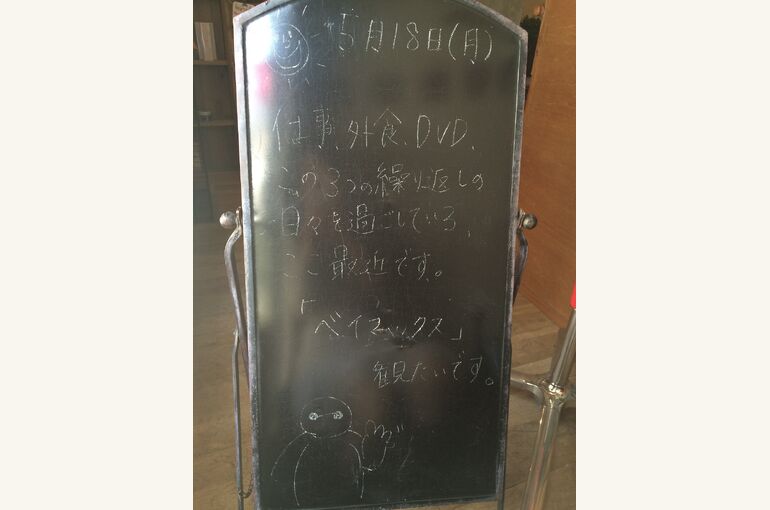 5月18日(月)
仕事、外食、DVD、
この3つの繰り返しの
日々を過ごしている、
ここ最近です。
「ベイマックス」
観たいです。